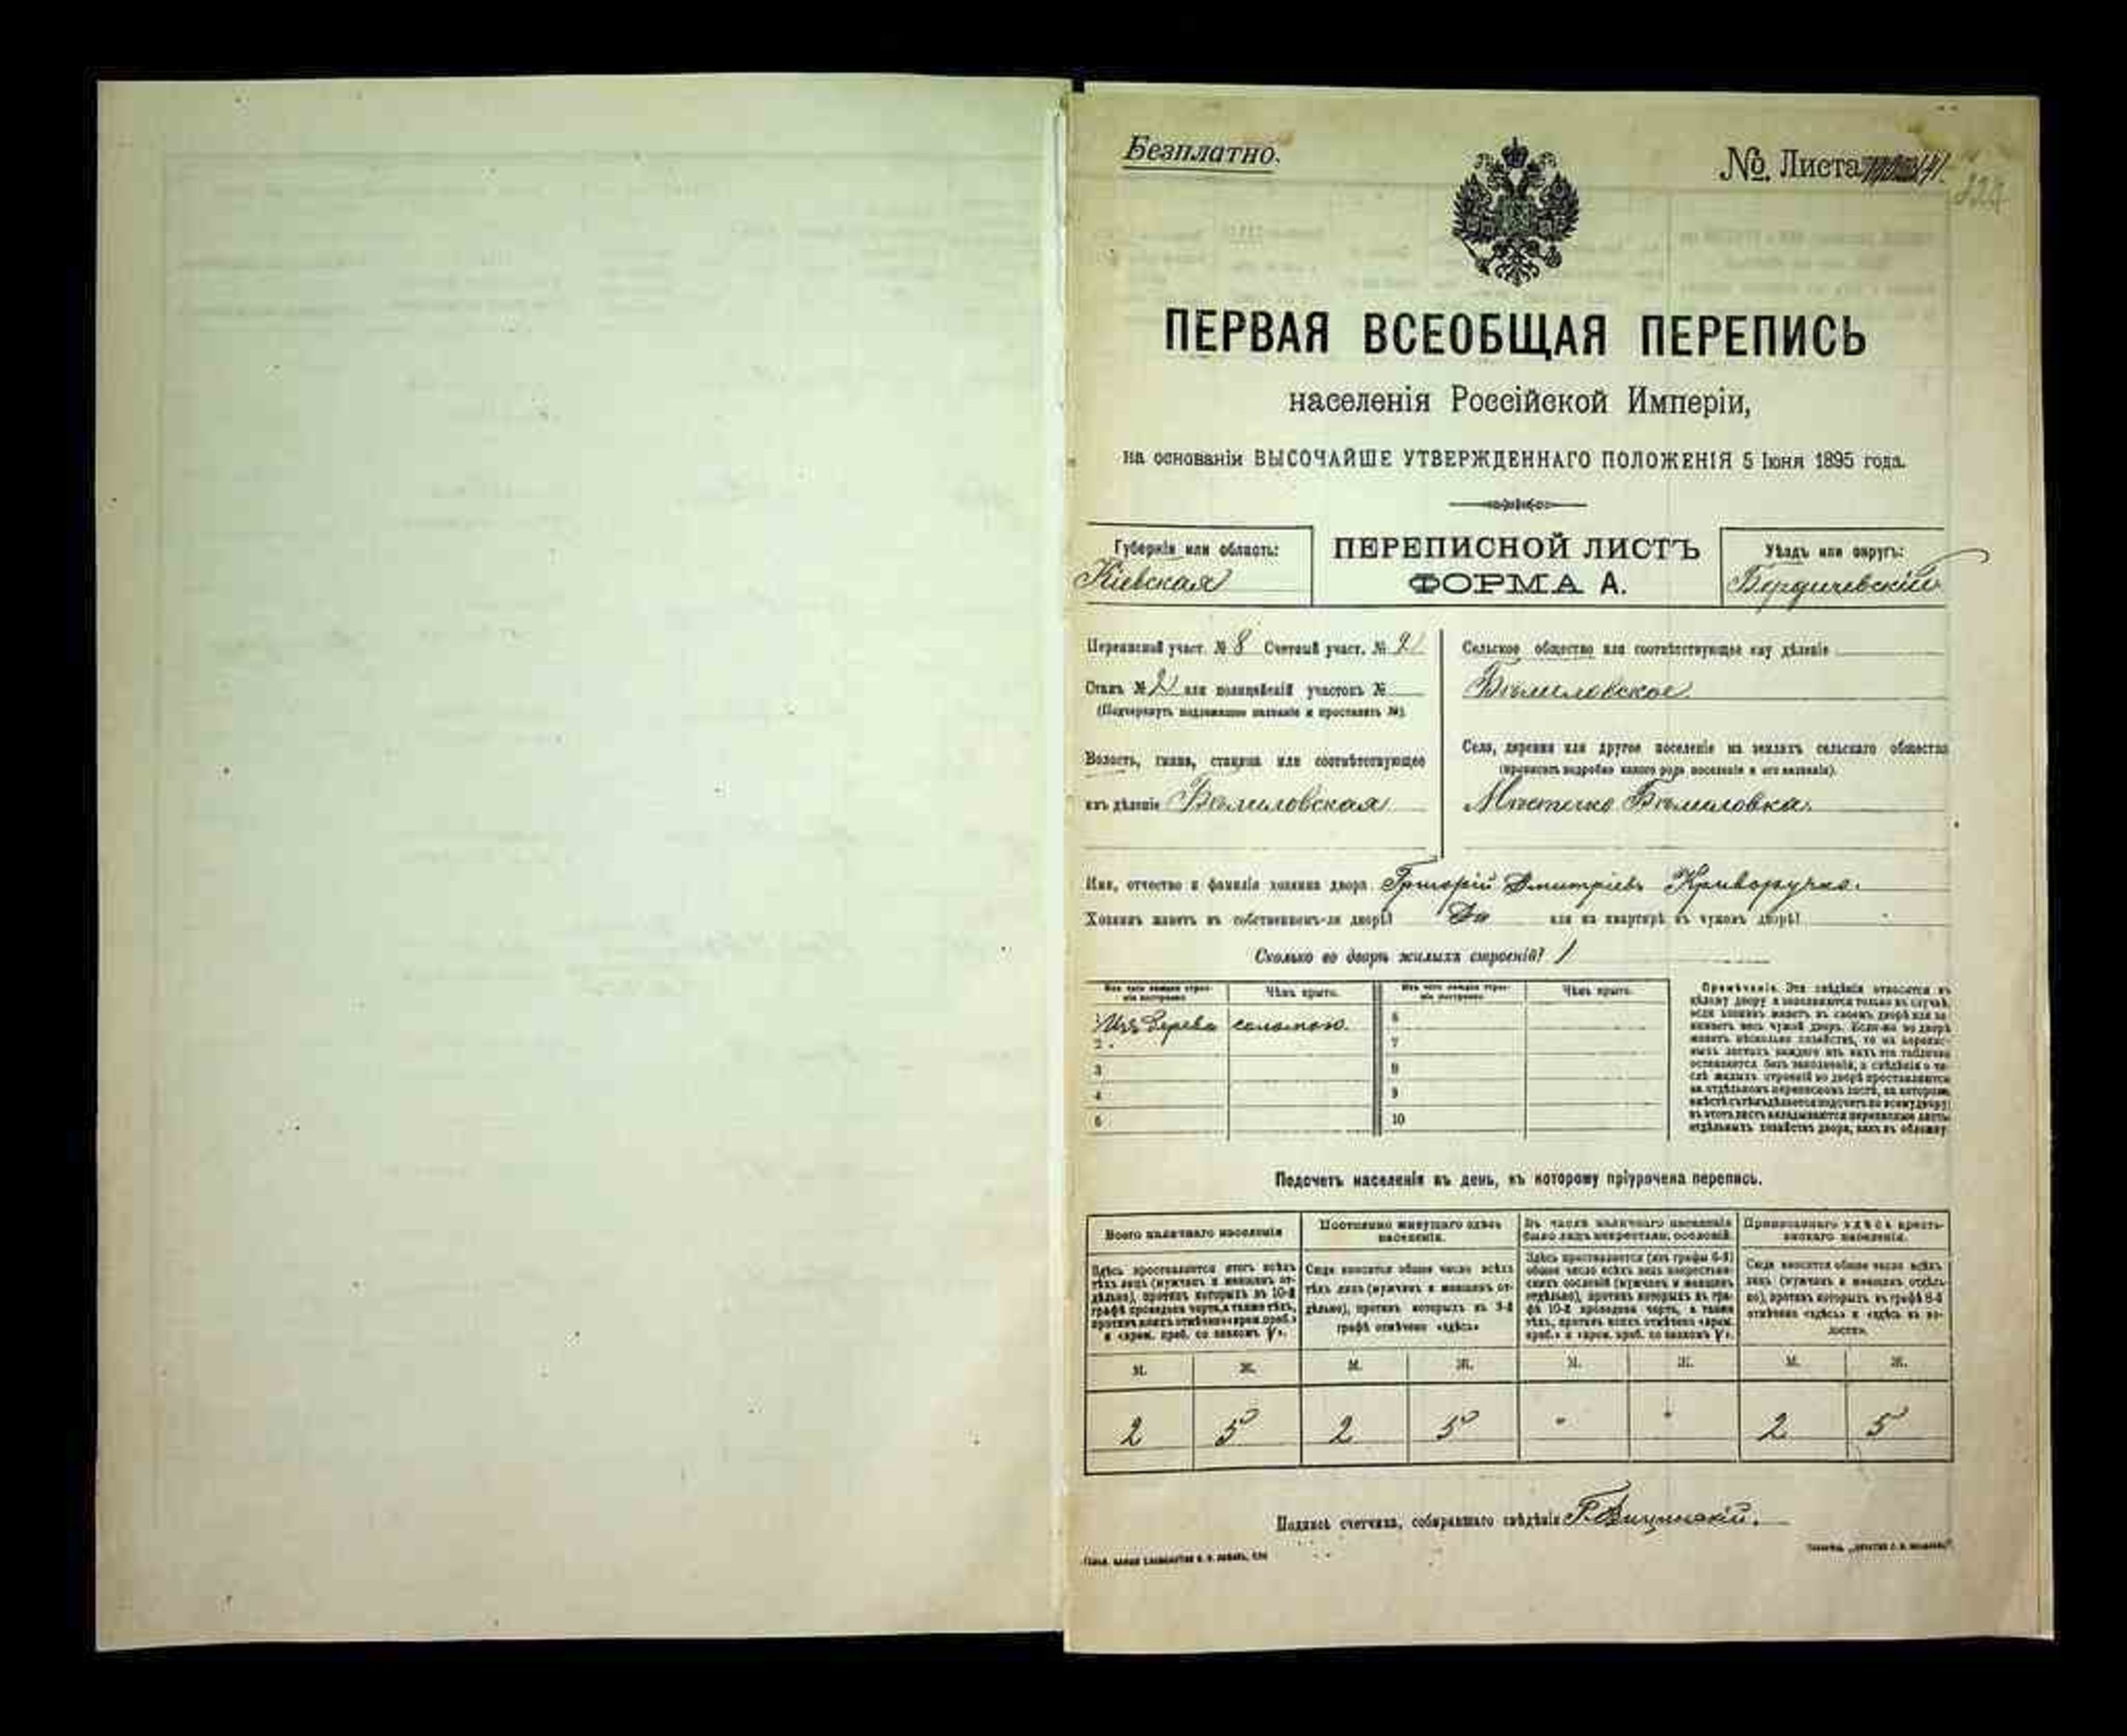 Безплатно.
№ Листа
ПЕРВАЯ ВСЕОБЩАЯ ПЕРЕПИСЬ
населенія Россійской Имперіи,
на основаніи ВЫСОЧАЙШЕ УТВЕРЖДЕННАГО ПОЛОЖЕНІЯ 5 Іюня 1895 года.
Губернія или область:
Кіевская
ПЕРЕПИСНОЙ ЛИСТЪ
ФОРМА А.
Уѣздъ или округъ:
Бердичевскій
Переписной участ. № 8 Счетный участ. № 2
Станъ № 2 или полицейскій участокъ №
(Подчеркнуть подлежащее названіе и проставить №).
Волость, гмина, станица или соотвѣтствующее
имъ дѣленіе Бѣлиловская
Сельское общество или соотвѣтствующее ему дѣленіе
Бѣлиловское
Село, деревня или другое поселеніе на земляхъ сельскаго общества
(прописать подробно какого рода поселеніе и его названіе).
Мѣстечко Бѣлиловка
Имя, отчество и фамилія хозяина двора Григорій Дмитріевъ Криворучко.
Хозяинъ живетъ въ собственномъ-ли дворѣ? Да или на квартирѣ въ чужомъ дворѣ?
Сколько во дворѣ жилыхъ строеній? 1
Изъ чего каждое строеніе построено. Чѣмъ крыто. Изъ чего каждое строеніе построено. Чѣмъ крыто.
1 Изъ дерева соломою. 6
2 7
3 8
4 9
5 10
Примѣчаніе. Эти свѣдѣнія относятся къ
цѣлому двору и заполняются только въ случаѣ,
если хозяинъ живетъ въ своемъ дворѣ или занимаетъ весь чужой дворъ. Если-же во дворѣ
живетъ нѣсколько хозяйствъ, то на переписныхъ листахъ каждаго изъ нихъ эта табличка
Подсчетъ населенія въ день, къ которому пріурочена перепись.
Всего наличнаго населенія
Постоянно живущаго здѣсь
населенія.
Въ числѣ наличнаго населенія
было лицъ некрестьян. сословій.
Приписаннаго здѣсь крестьянскаго населенія.
Здѣсь проставляется итогъ всѣхъ
тѣхъ лицъ (мужчинъ и женщинъ отдѣльно), противъ которыхъ въ 10-й
графѣ проведена черта, а также тѣхъ,
противъ коихъ отмѣчено «врем. преб.»
и «врем. преб. со знакомъ V».
Сюда вносится общее число всѣхъ
тѣхъ лицъ (мужчинъ и женщинъ отдѣльно), противъ которыхъ въ 9-й
графѣ отмѣчено «здѣсь»
Здѣсь проставляется (изъ графы 6-й)
общее число всѣхъ лицъ некрестьянскихъ сословій (мужчинъ и женщинъ
отдѣльно), противъ которыхъ въ графѣ 10-й проведена черта, а также
тѣхъ, противъ коихъ отмѣчено «врем.
преб.» и «врем. преб. со знакомъ V».
Сюда вносится общее число всѣхъ
лицъ (мужчинъ и женщинъ отдѣльно), противъ которыхъ въ графѣ 8-й
отмѣчено «здѣсь» и «здѣсь въ волости».
М. Ж. М. Ж. М. Ж. М. Ж.
2 5 2 5 " " 2 5
Подпись счетчика, собиравшаго свѣдѣнія